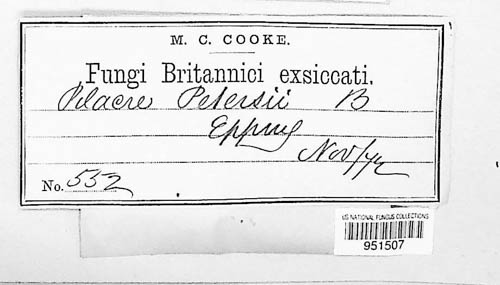 M. C. COOKE.
Fungi Britannici exsiccati.
Pilacre Petersii B
Epping
Nov/
No. 552
US NATIONAL FUNGUS COLLECTIONS
951507